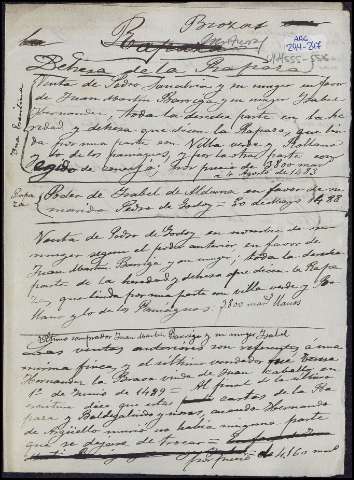 Brozas
ABC
244-247
Dehesa de la Raposa
Venta de Pedro y su muger en favor
de Juan Martin Barriga y su muger Isabel
Hernandez, toda la decima parte en la he
redad y dehesa que dicen la Raposa, que lin
da por una parte con Villa verde y Roldana
y de los paniaguas y por la otra parte con
egido de concejo; Por precio de 3800 mar
a 10 Agosto de 1483
Poder de Isabel de Aldana en favor de su
marido Pedro de Godoy - 20 de Mayo 1488
Venta de Pedro de Godoy en nombre de su
muger segun el poder anterior en favor de
Juan Martin Barriga y su muger; toda la decima
parte de la heredad y dehesa que dicen la Rapo
sa, que linda por una parte con villa verde y Ro
llan y lo de los Paniaguas. 3800 mad llanos
Ultimo comprador Juan Martin Barriga y su muger Isabel
Las ventas anteriores son referentes a una
misma finca, y el ultimo vendedor fue Teresa
Hernandez la Brava viuda de Juan Caballo, en
1º de Junio de 1489 = Al final de la ultima
escritura dice que estas cartas de la Ra
posa y
de Argüello murio no habia ninguna parte
que se dejase de trocar =
por precio de 4.160 mad